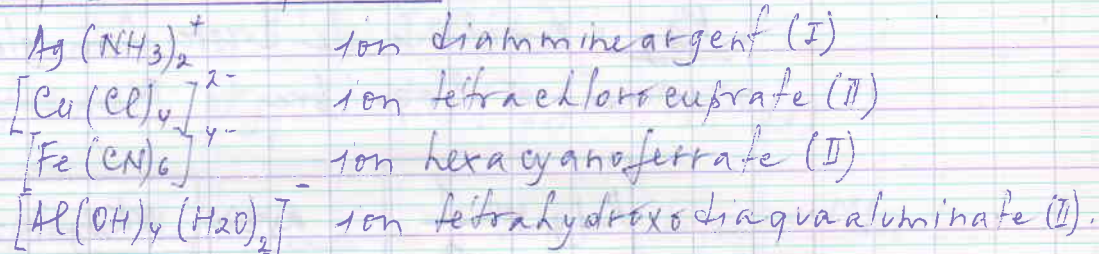 Ag(NH3)2+ ion diammineargent (I)
[Cu(Cl)4]2- ion tétrachlorocuprate (II)
[Fe(CN)6]4- ion hexacyanoferrate (II)
[Al(OH)4(H2O)2]- ion tétrahydroxodiaquaaluminate (II).